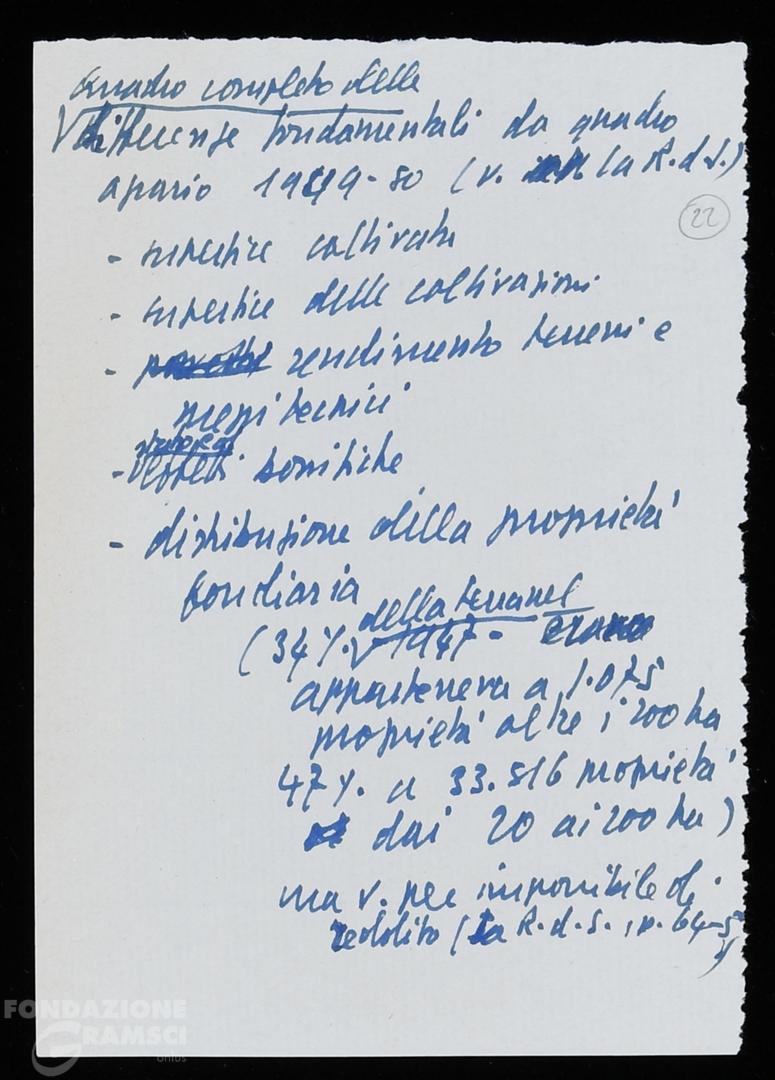 Quadro completo delle
differenze fondamentali da quadro
agrario 1949-50 (v. la R.d.S.)
22
- superfice coltivata
- superfice delle coltivazioni
- rendimento terreni e
mezzi tecnici
- bonifiche
- distribuzione della proprietà
fondiaria
della terra nel
(34% 1947 -
apparteneva a 1.075
proprietà oltre i 200 ha
47% a 33.516 proprietà
dai 20 ai 200 ha)
ma v. per imponibile di
reddito (La R.d.S., p. 64-5)
FONDAZIONE
GRAMSCI
onlus